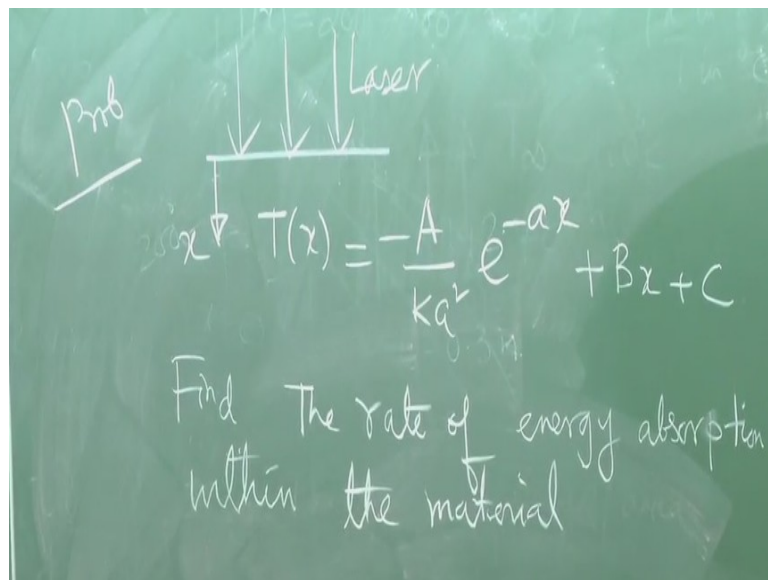 Prob
Laser
x T(x) = -A/ka² e^-ax + Bx + C
Find The rate of energy absorption
within the material